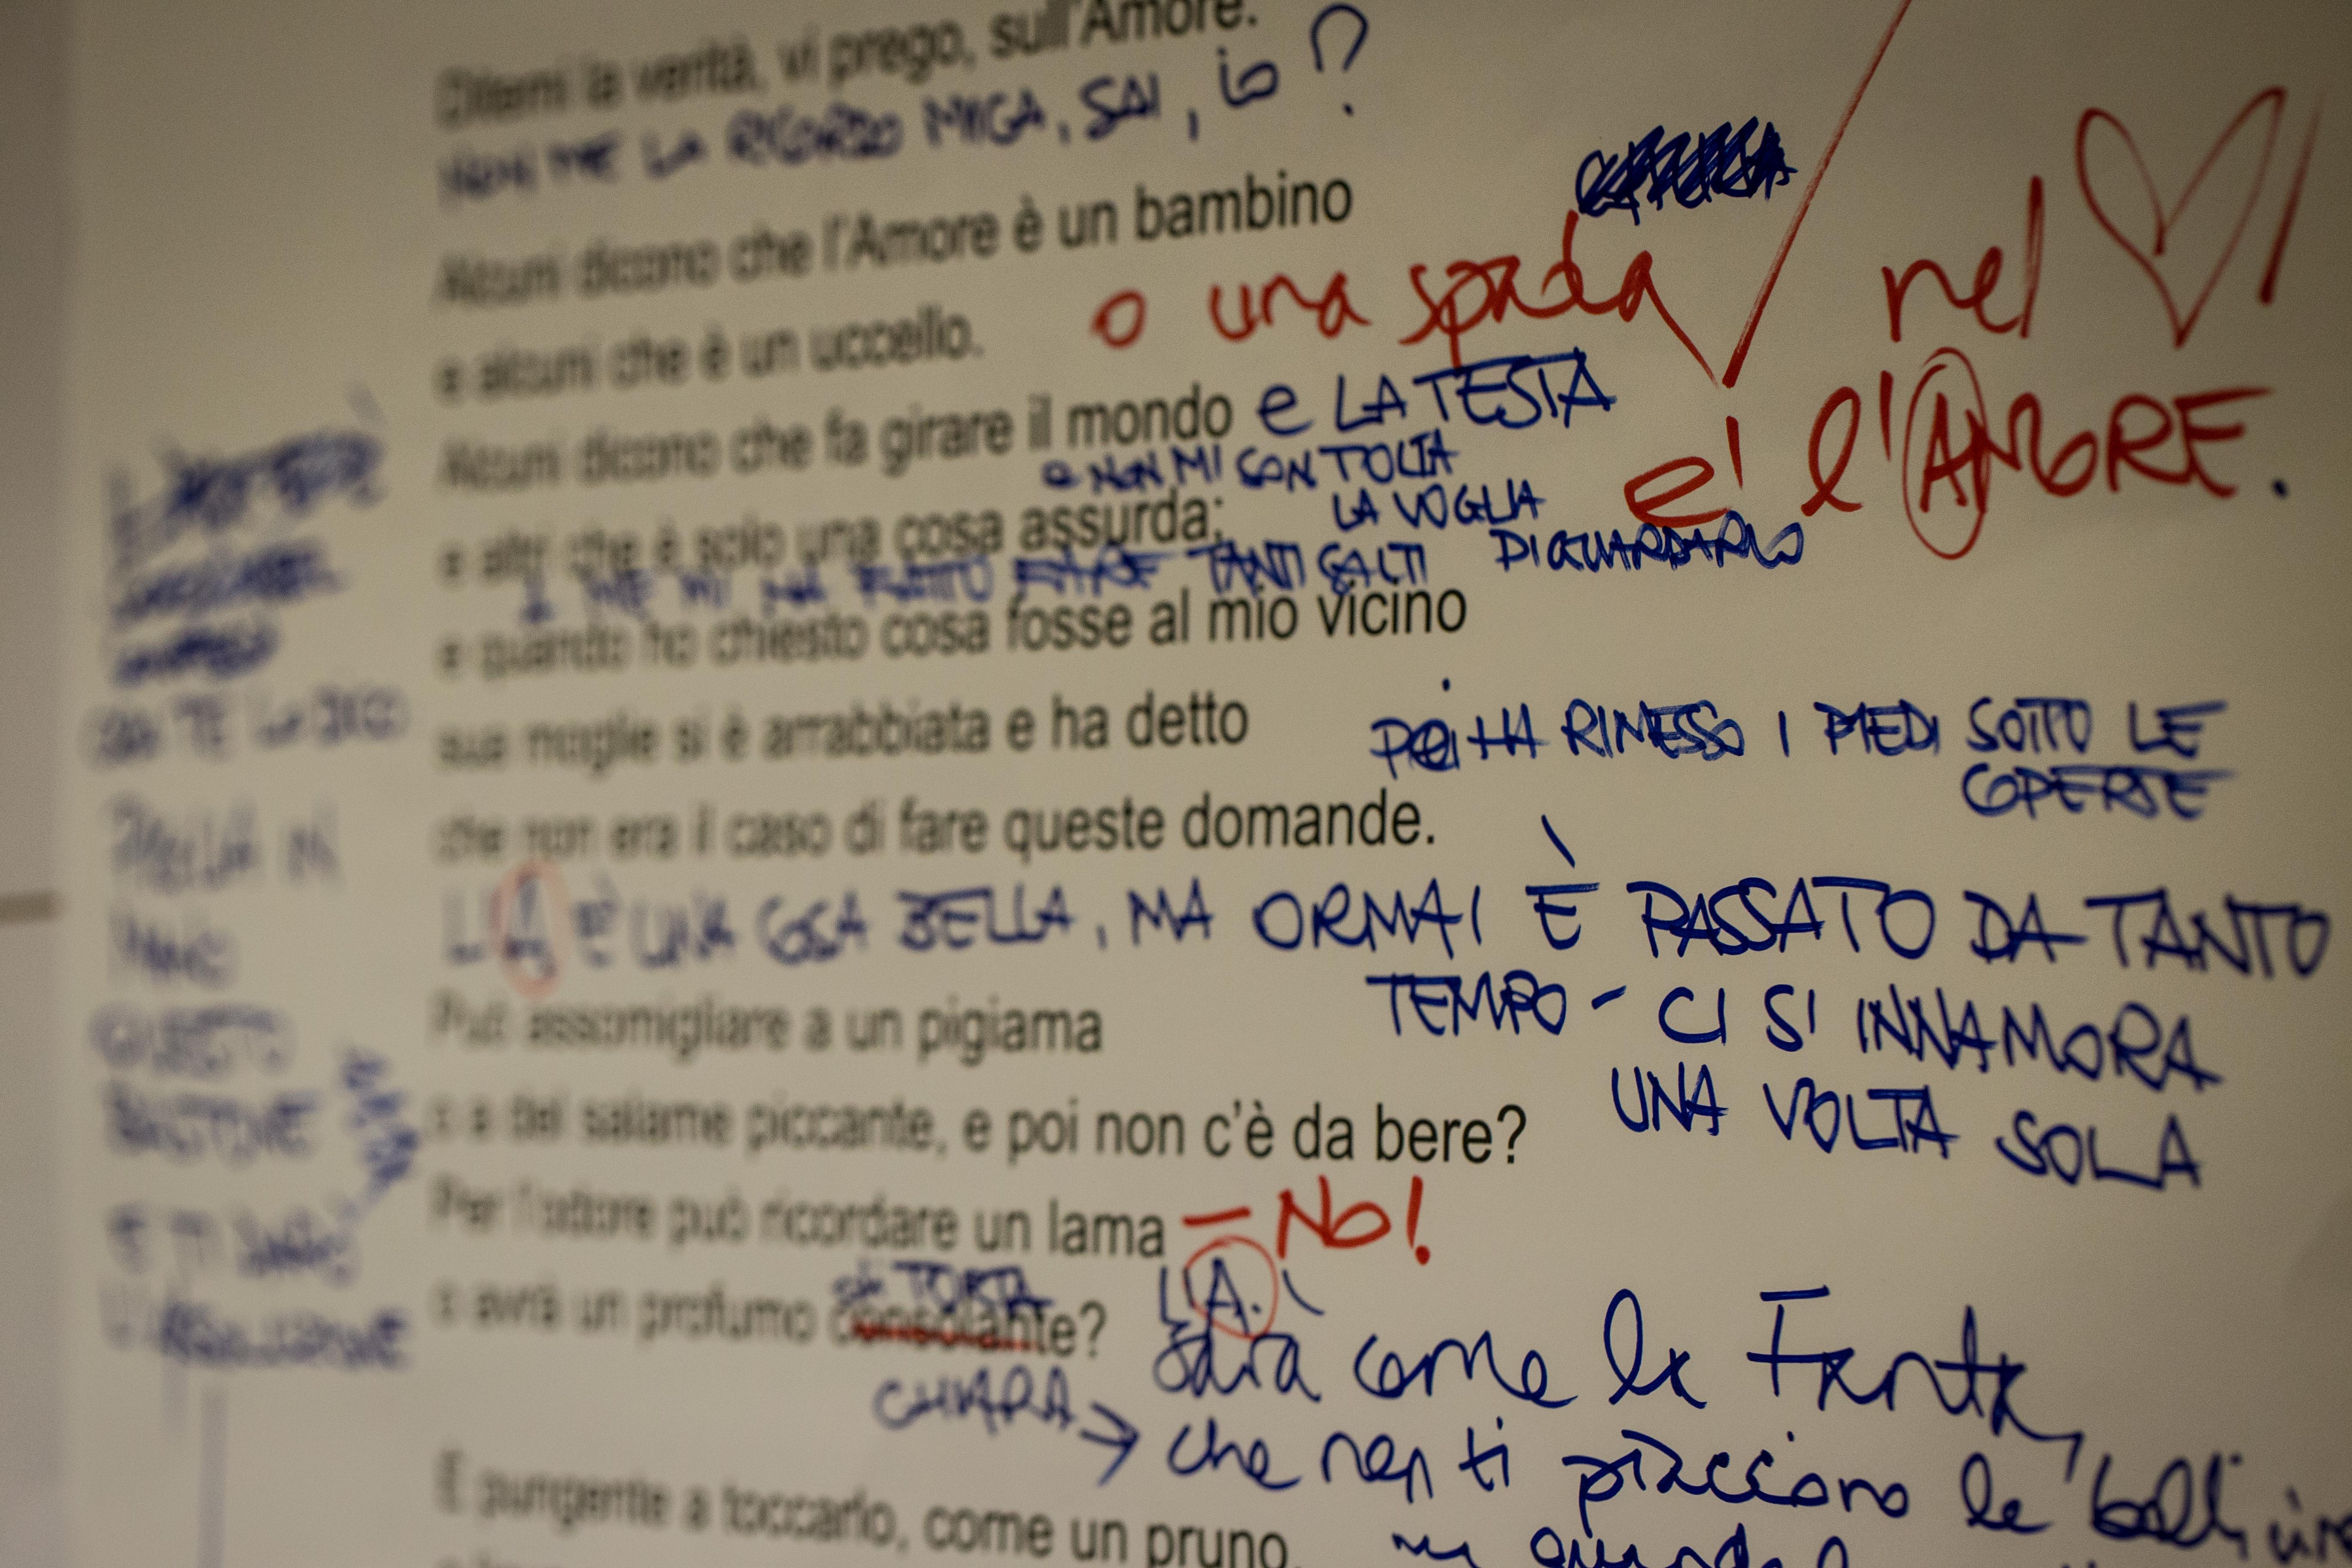 Ditemi la verità, vi prego, sull'Amore.
NON ME LA RICORDO MICA, SAI, io?
Alcuni dicono che l'Amore è un bambino
e alcuni che è un uccello.
o una spada nel
Alcuni dicono che fa girare il mondo e LA TESTA
è l'AMORE.
e NON MI SON TOLTA
LA VOGLIA
DI GUARDARLO
e altri che è solo una cosa assurda;
A ME MI HA FATTO FARE TANTI SALTI
e quando ho chiesto cosa fosse al mio vicino
sua moglie si è arrabbiata e ha detto
poi HA RIMESSO I PIEDI SOTTO LE
COPERTE
che non era il caso di fare queste domande.
L'A È UNA COSA BELLA, MA ORMAI È PASSATO DA TANTO
TEMPO - CI SI INNAMORA
UNA VOLTA SOLA
Può assomigliare a un pigiama
o a del salame piccante, e poi non c'è da bere?
Per l'odore può ricordare un lama - No!
o avrà un profumo consolante?
di TORTA
L'A.
CHIARA → sarà come la Fanta,
che non ti piacciono le bollicine
È pungente a toccarlo, come un pruno,
ORA TE LO DICO
PIGLIA IN
MANO
QUESTO
BASTONE
E TI DARÒ